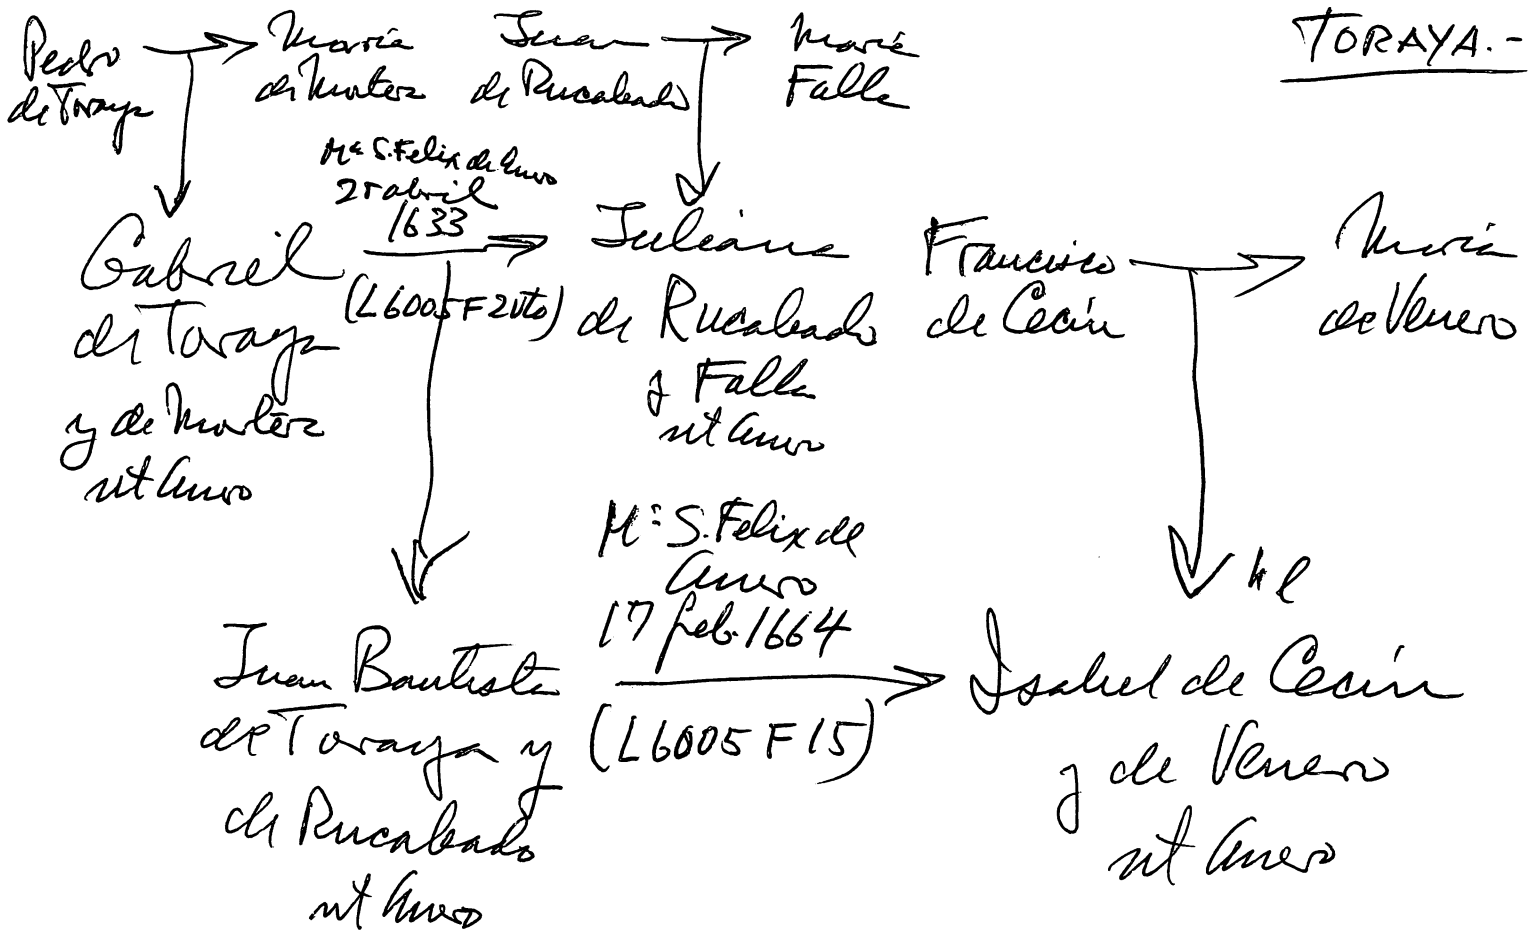 TORAYA.-
Pedro
de Toraya
Maria
de Murtera
Juan
de Rucabado
Maria
Falla
Mª S. Felix de Anero
25 abril
1633
(L6005 F2vto)
Gabriel
de Toraya
y de Murtera
nt Anero
Juliana
de Rucabado
y Falla
nt Anero
Francisco
de Cecin
Maria
de Venero
Mª S. Felix de
Anero
17 feb. 1664
(L6005 F15)
Juan Bautista
de Toraya y
de Rucabado
nt Anero
Isabel de Cecin
y de Venero
nt Anero